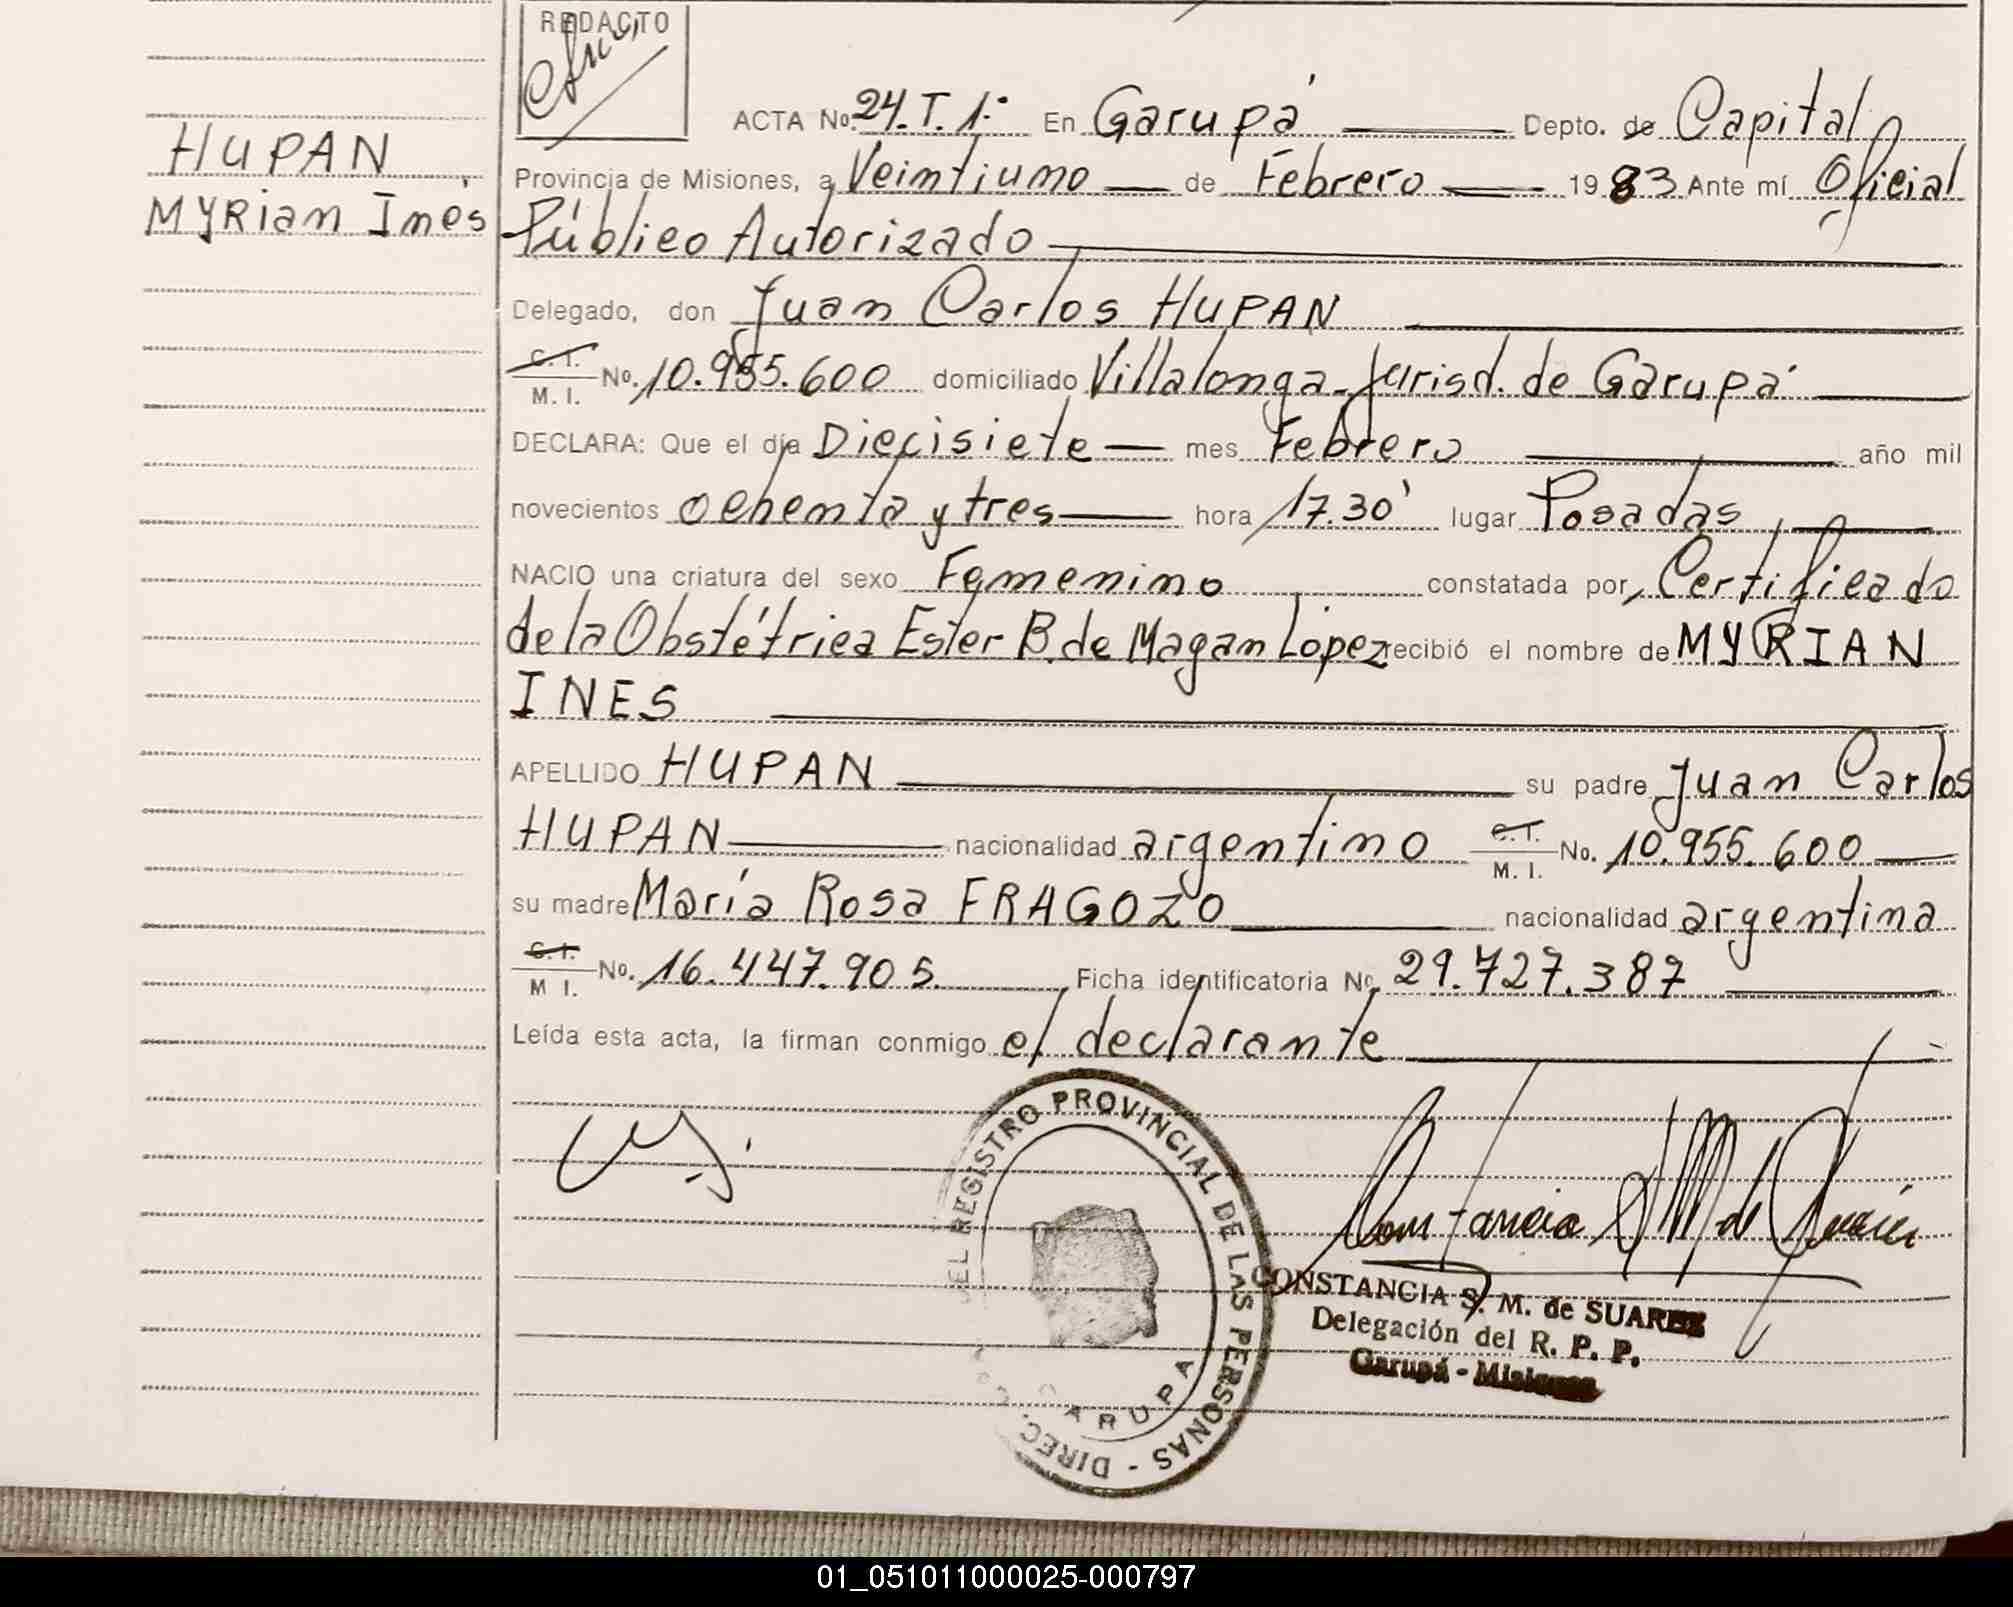 REDACTO
HUPAN
MYRian Inés
ACTA No. 24. T. 1º En Garupá Depto. de Capital
Provincia de Misiones, a Veintiuno de Febrero 1983 Ante mí Oficial
Público Autorizado
Delegado, don Juan Carlos HUPAN
C. I. M. I. No. 10.955.600 domiciliado Villalonga-Jurisd. de Garupá
DECLARA: Que el día Diecisiete mes Febrero año mil
novecientos ochenta y tres hora 17.30' lugar Posadas,
NACIO una criatura del sexo Femenino constatada por, Certificado
de la Obstétrica Ester B. de Magan López recibió el nombre de MYRIAN
INES
APELLIDO HUPAN su padre Juan Carlos
HUPAN nacionalidad argentino C. I. M. I. No. 10.955.600
su madre María Rosa FRAGOZO nacionalidad argentina
C. I. M I. No. 16.447.905. Ficha identificatoria No. 29.727.387
Leída esta acta, la firman conmigo el declarante
DIREC. DEL REGISTRO PROVINCIAL DE LAS PERSONAS -
GARUPA
CONSTANCIA S. M. de SUAREZ
Delegación del R. P. P.
Garupá - Misiones
01_051011000025-000797